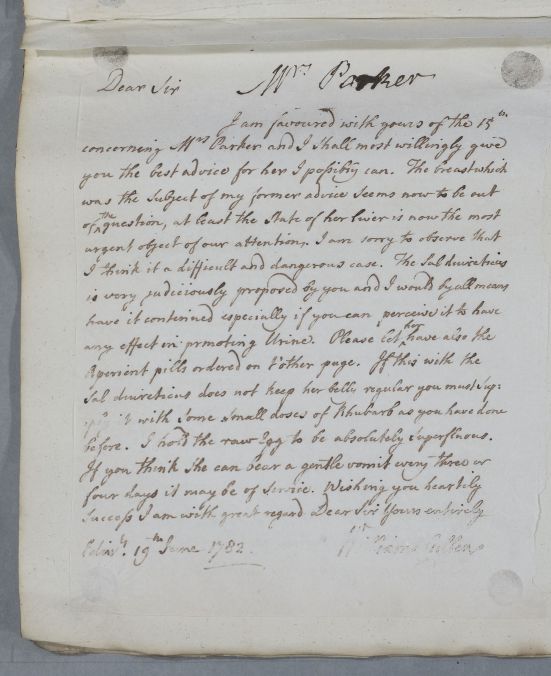 Mrs. Parker
Dear Sir
I am favoured with yours of the 15th.
concerning Mrs Parker and I shall most willingly give
you the best advice for her I possibly can. The breast which
was the Subject of my former advice seems now to be out
of the question, at least the State of her liver is now the most
urgent object of our attention. I am sorry to observe that
I think it a difficult and dangerous case. The Sal diureticus
is very judiciously proposed by you and I would by all means
have it continued especially if you can perceive it to have
any effect in prmoting Urine. Please let her have also the
Aperient pills ordered on t'other page. If this with the
Sal diureticus does not keep her belly regular you must sup:
ply it with some small doses of Rhubarb as you have done
before. I hold the raw Egg to be absolutely superfluous.
If you think she can bear a gentle vomit every three or
four days it may be of service. Wishing you heartely
Success I am with great regard Dear Sir Yours entirely
Edinr. 19th June 1782. William Cullen